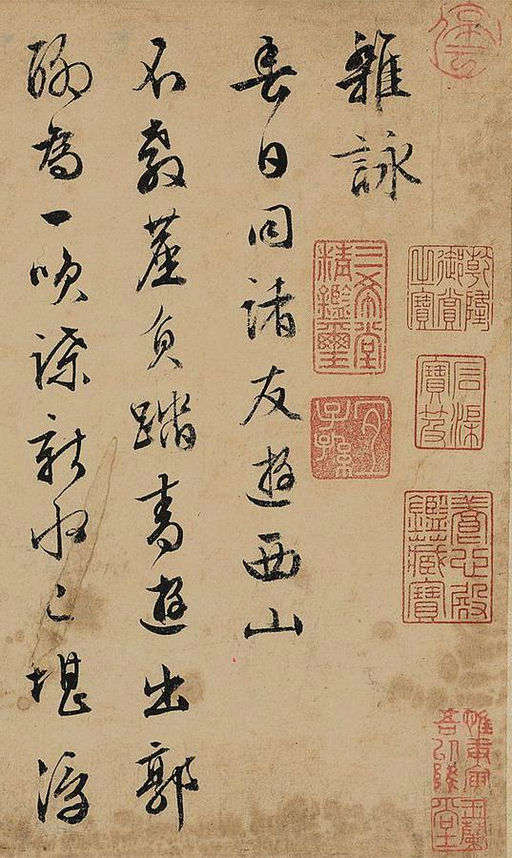 雜詠
春日同諸友遊西山
不教塵負踏青遊出郭
聊為一
新水
堪浮
三希堂精鑑璽
宜子孫
乾隆御賞之寶
石渠寶笈
養心殿鑑藏寶